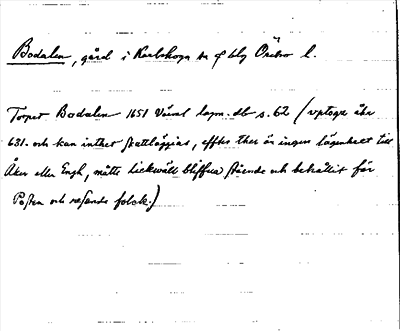 Bodalen, gård i Karlskoga sn o bg Örebro l.
Torpet Bodalen 1651 Värml lagm. db s. 62 (uptogz åhr
631. och kan inthet skattläggias, effter ther är ingen lägenheet till
Åker eller Engh, måtte lickwäll bliffua stående och bekållit för
Posten och resande folck.)